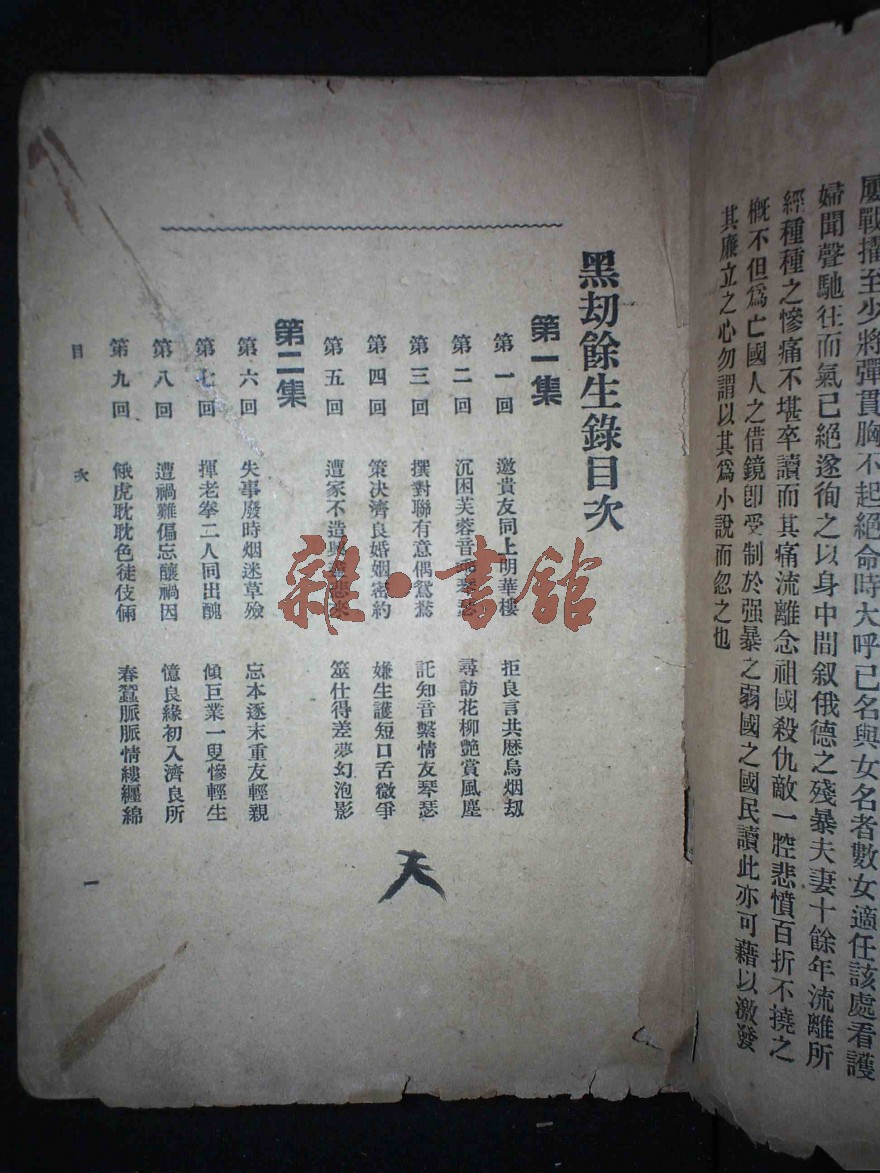 屢戰擢至少將彈貫胸不起絕命時大呼己名與女名者數女適任該處看護
婦聞聲馳往而氣已絕遂徇之以身中間叙俄德之殘暴夫妻十餘年流離所
經種種之慘痛不堪卒讀而其痛流離念祖國殺仇敵一腔悲憤百折不撓之
概不但爲亡國人之借鏡卽受制於强暴之弱國之國民讀此亦可藉以激發
其廉立之心勿謂以其爲小說而忽之也
黑劫餘生錄目次
第一集
第一回 邀貴友同上明華樓 拒良言共歷烏烟劫
第二回 沉困芙蓉音 琴瑟 尋訪花柳艷賞風塵
第三回 撰對聯有意偶鴛鴦 託知音繫情友琴瑟
第四回 策决濟良婚姻密約 嫌生護短口舌微爭
第五回 遭家不造興盡悲來 筮仕得差夢幻泡影
第二集
第六回 失事廢時烟迷草殮 忘本逐末重友輕親
第七回 揮老拳二人同出醜 傾巨業一叟慘輕生
第八回 遭禍難偏忘釀禍因 憶良緣初入濟良所
第九回 餓虎耽耽色徒伎倆 春蠶脈脈情縷纏綿
目次 一
天
雜·書館